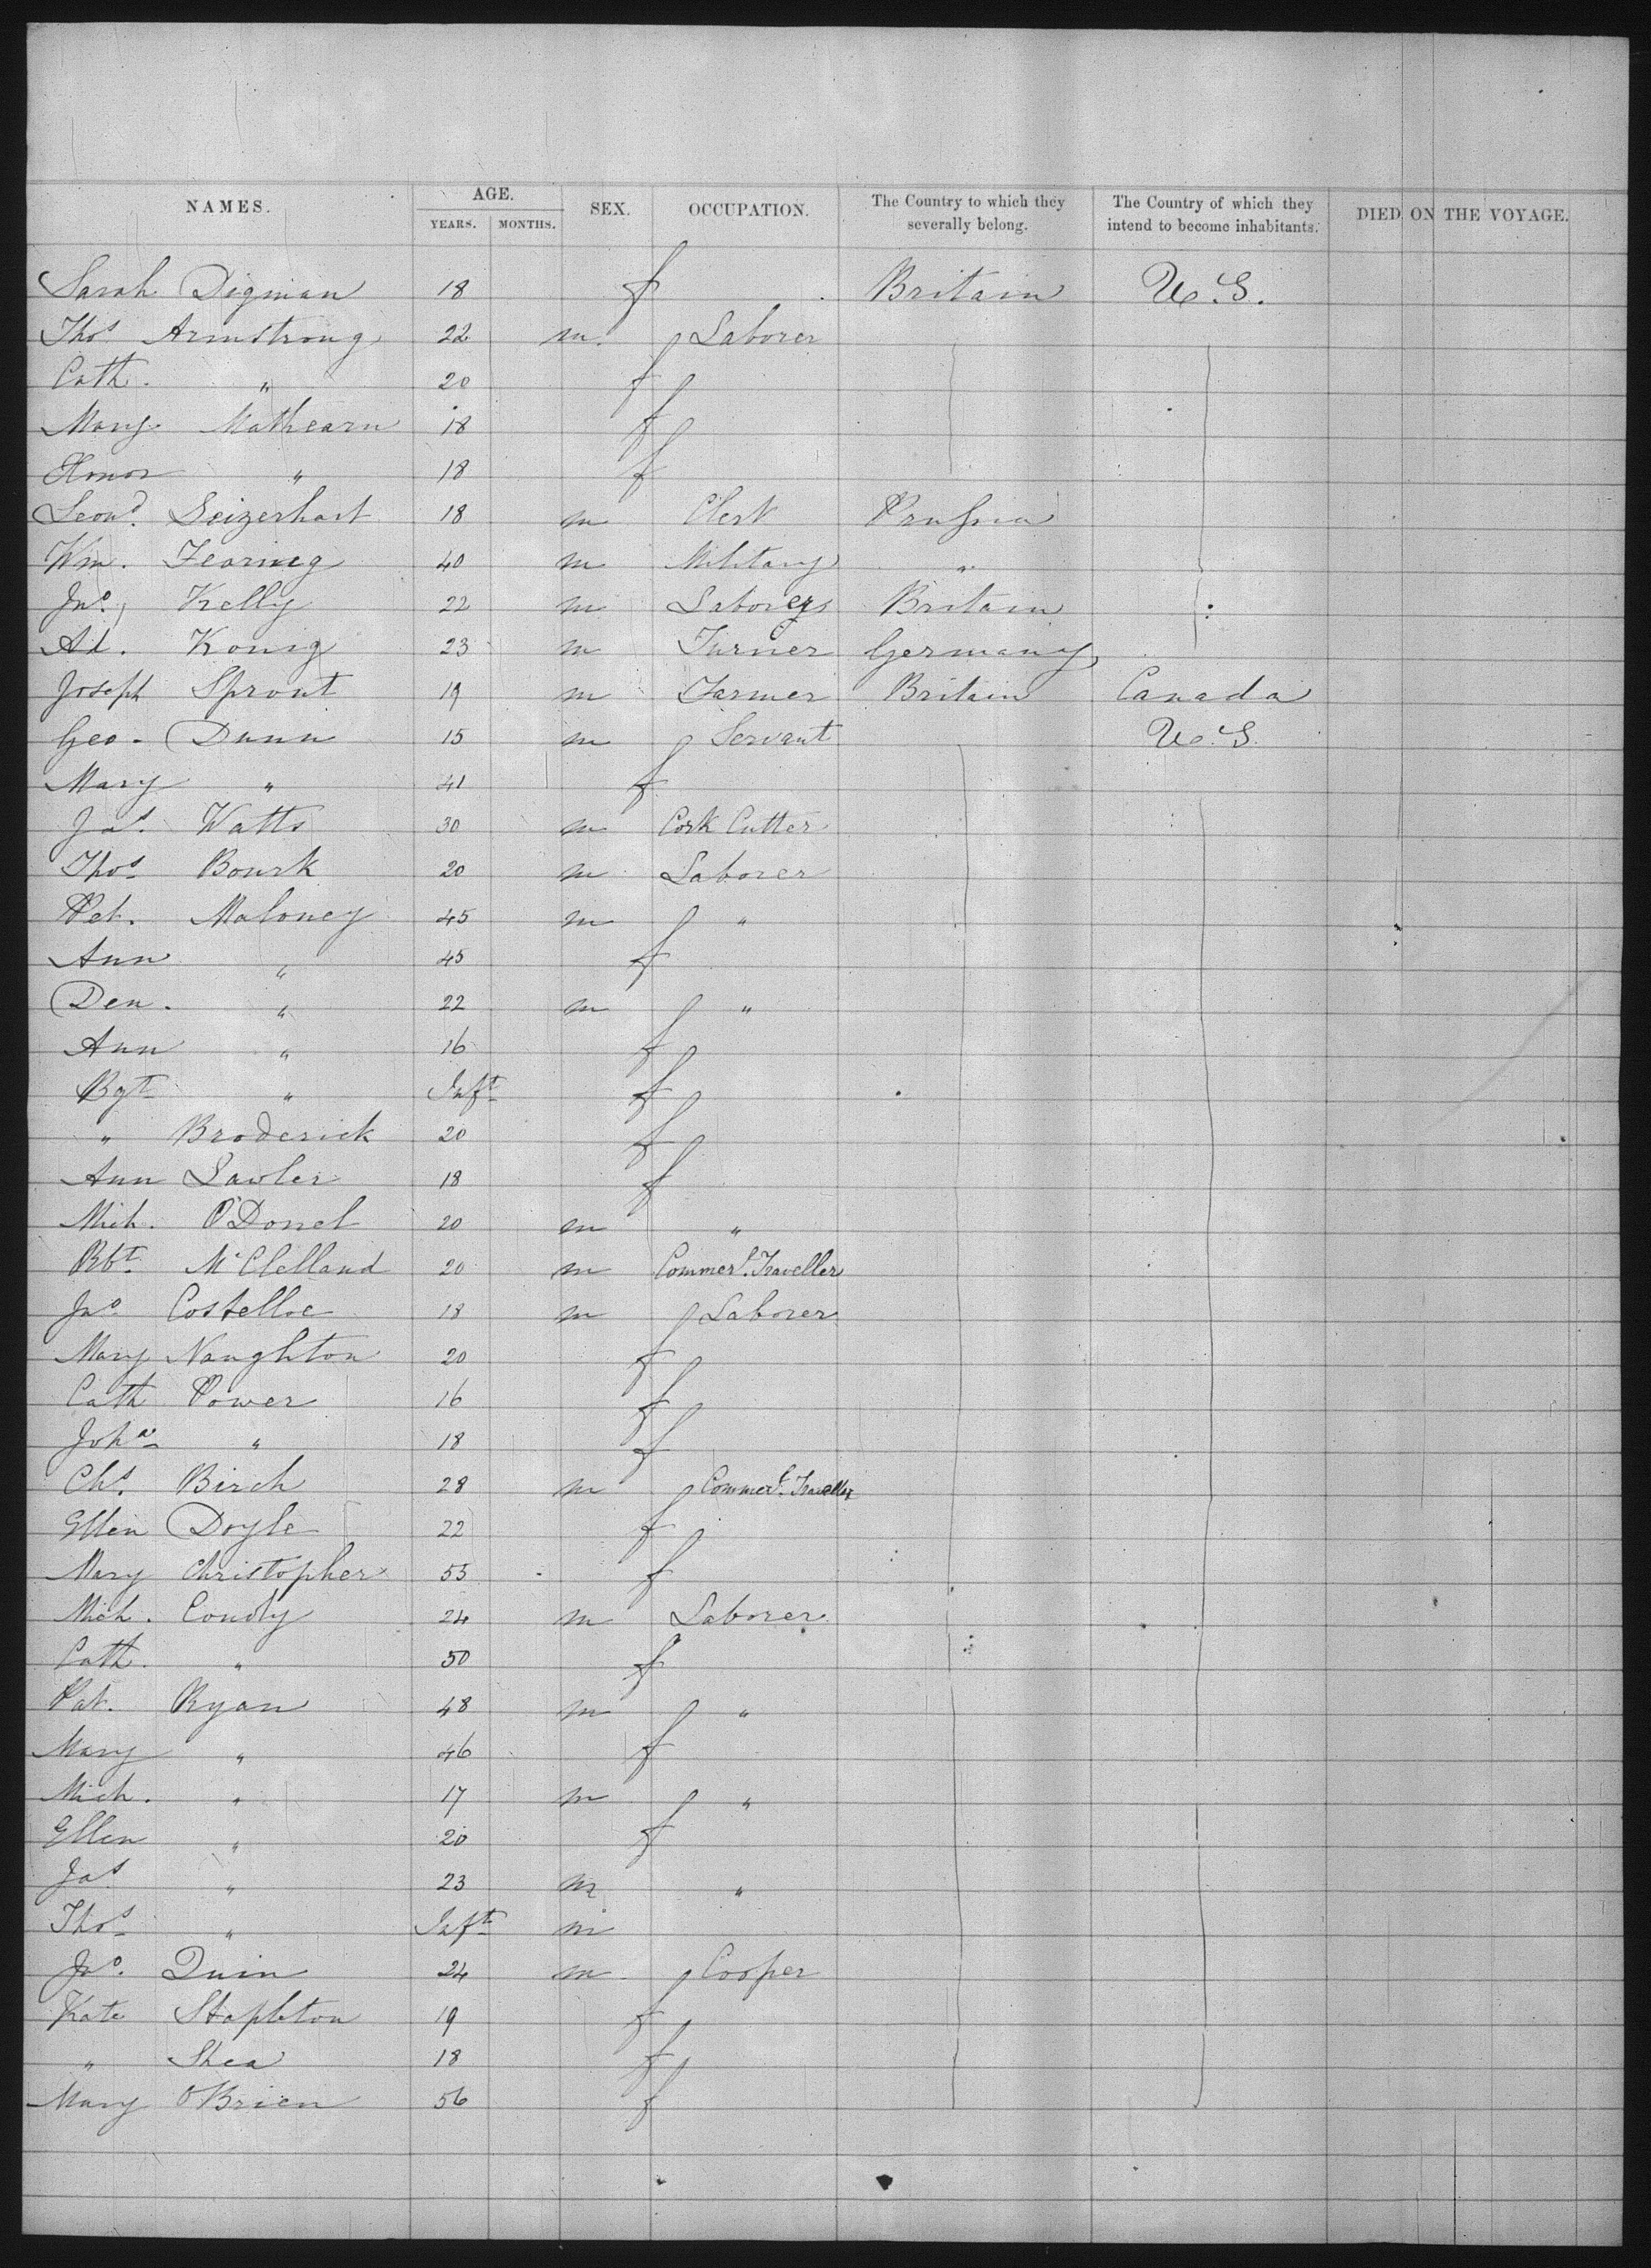 NAMES. AGE. YEARS. MONTHS. SEX. OCCUPATION. The Country to which they severally belong. The Country of which they intend to become inhabitants. DIED ON THE VOYAGE.
Sarah Digman 18 f Britain U.S.
Thos Armstrong 22 m Laborer
Cath. " 20 f
Mary Mathearn 18 f
Honor " 18 f
Leond. Seizerhart 18 m Clerk Prussia
Wm. Fearing 40 m Military "
Jno. Kelly 22 m Laborer Britain
Ad. Konig 23 m Turner Germany
Joseph Sprout 19 m Farmer Britain Canada
Geo. Dunn 15 m Servant U.S.
Mary " 41 f
Jas. Watts 30 m Cork Cutter
Thos Bourk 20 m Laborer
Pet. Maloney 45 m "
Ann " 45 f
Den. " 22 m "
Ann " 16 f
Bgt " Inft f
" Broderick 20 f
Ann Lawler 18 f
Mich. O'Donel 20 m "
Rbt. McClelland 20 m Commerl. Traveller
Jno Costelloe 18 m Laborer
Mary Naughton 20 f
Cath Power 16 f
Joha " 18 f
Chs. Birch 28 m Commerl. Traveller
Ellen Doyle 22 f
Mary Christopher 55 f
Mich. Condy 24 m Laborer
Cath. " 50 f
Pat. Ryan 48 m "
Mary " 46 f
Mich. " 17 m "
Ellen " 20 f
Jas " 23 m "
Thos " Inft m
Jno. Quin 24 m Cooper
Kate Stapleton 19 f
" Shea 18 f
Mary OBrien 56 f